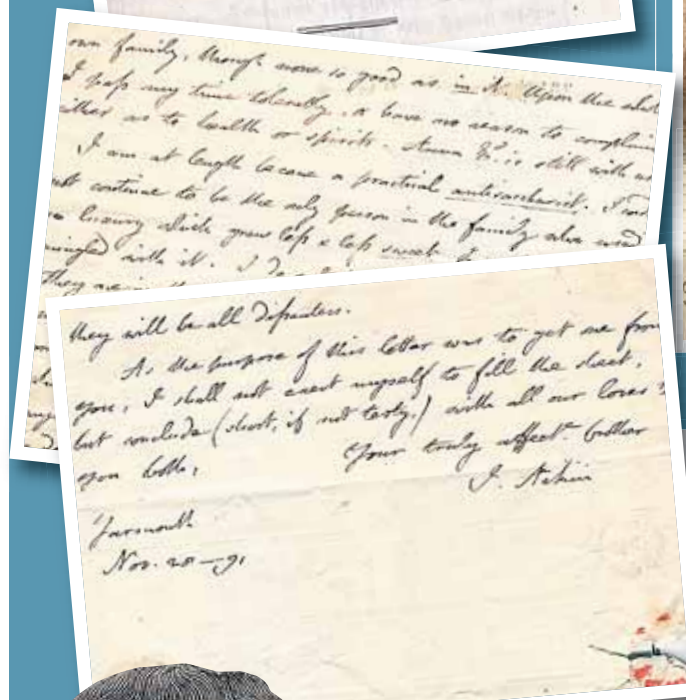 own family, though none so good as in it. Upon the whole
I pass my time tolerably, & have no reason to complain
either as to health or spirits. Anna &c. is still with us
I am at length become a practical antisaccharist. I could
not continue to be the only person in the family who used
a luxury which grew less & less sweet
mingled with it. I
they
they will be all Dissenters.
As the purpose of this letter was to get one from
you, I shall not exert myself to fill the sheet,
but conclude (short, if not testy.) with all our loves to
you both,
Your truly affect. brother
J. Aikin
Yarmouth
Nov. 20 — 91